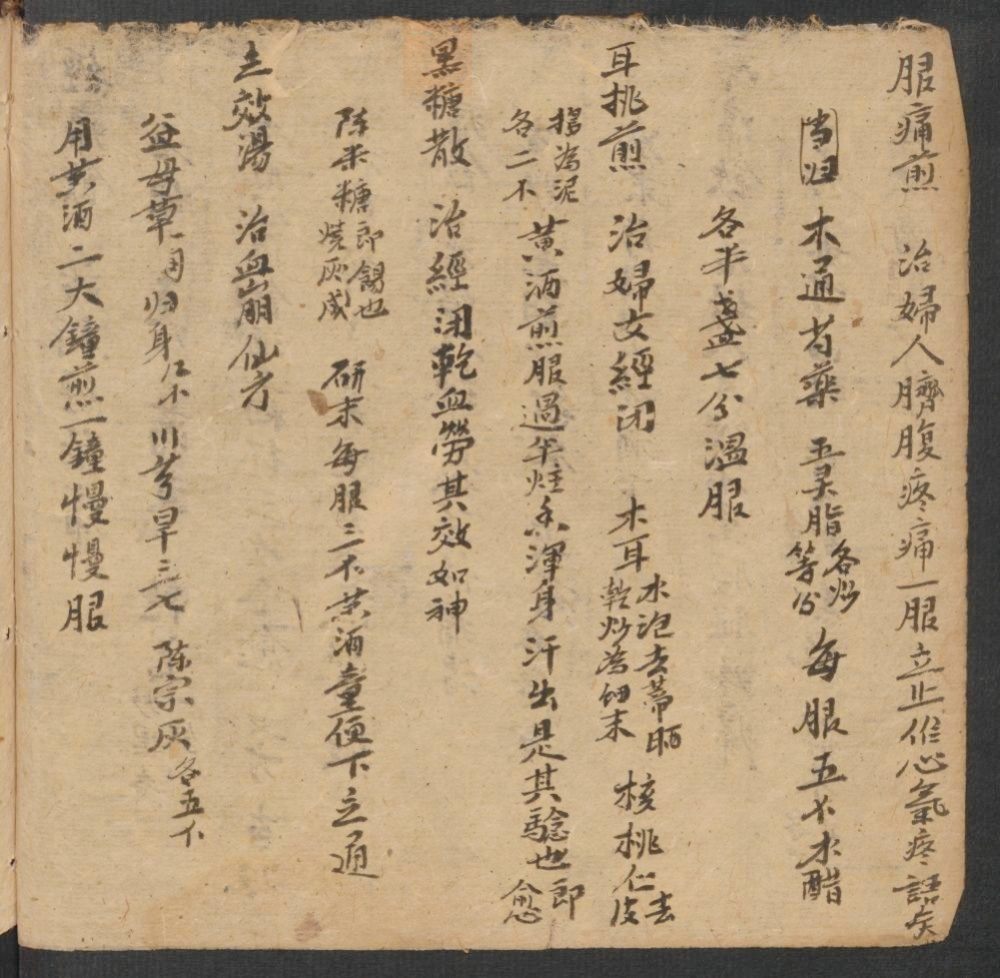 服痛煎　治婦人臍腹疼痛一服立止 心氣疼
当归　木通芍藥　五灵脂各炒等分　每服五不水醋
各半盞七分溫服
耳桃煎　治婦女經闭　木耳水泡去蒂晒乾炒為細末　核桃仁去皮
搗為泥各二不　黃酒煎服過半炷香渾身汗出是其驗也即愈
黑糖散　治經闭乾血勞其效如神
陈米糖即錫也燒灰成　研末每服三不黄酒童便下立通
立效湯　治血崩仙方
益母草用归身 川芎旱三七　陈宗灰各五不
用黄酒二大鐘煎一鐘慢慢服